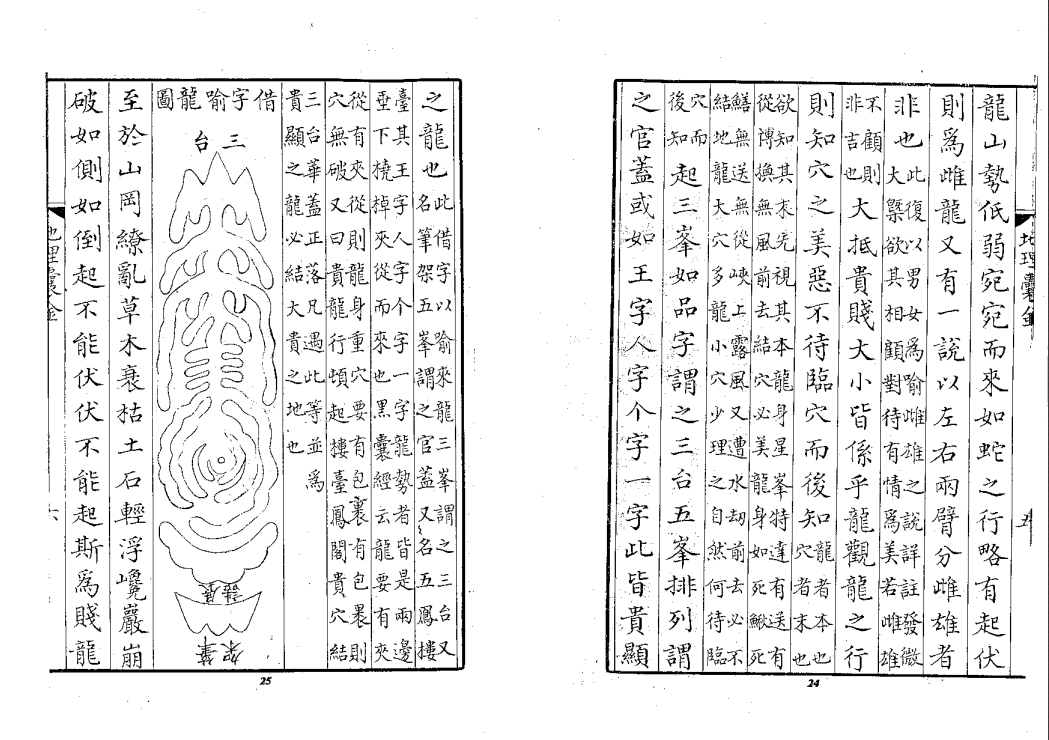 地理囊金
五
龍山勢低弱宛宛而來如蛇之行略有起伏
則爲雌龍又有一說以左右兩臂分雌雄者
非也此復以男女爲喻雌雄之說詳註發微
大槩欲其相顧對待有情爲美若雌雄
不顧則
非吉也大抵貴賤大小皆係乎龍觀龍之行
則知穴之美惡不待臨穴而後知龍者本也
穴者末也
欲知其末先視其本龍身星峯特達有送有
從愽換無風前去結穴必美龍身如死鰍死
鱔無送無從峽上露風又遭水刼前去必不
結地龍大穴多龍小穴少理之自然何待臨
穴而
後知起三峯如品字謂之三台五峯排列謂
之官蓋或如王字人字个字一字此皆貴顯
24
之龍也此借字以喻來龍三峯謂之三台又
名筆架五峯謂之官蓋又名五鳳樓
臺其王字人字个字一字龍勢者皆是兩邊
垂下橈棹夾從而來也黑囊經云龍要有夾
從有夾從則龍身重穴要有包裹有包裹則
穴無破又曰貴龍行頓起樓臺鳳閣貴穴結
三台華蓋正落凡遇此等並爲
貴顯之龍必結大貴之地也
借字喻龍圖
三台
筆架
至於山岡繚亂草木衰枯土石輕浮巉巖崩
破如側如倒起不能伏伏不能起斯爲賤龍
地理囊金
六
25